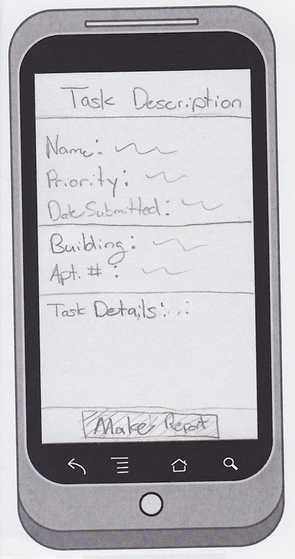 Task Description
Name:
Priority:
Date Submitted:
Building:
Apt. # :
Task Details:
Make Report